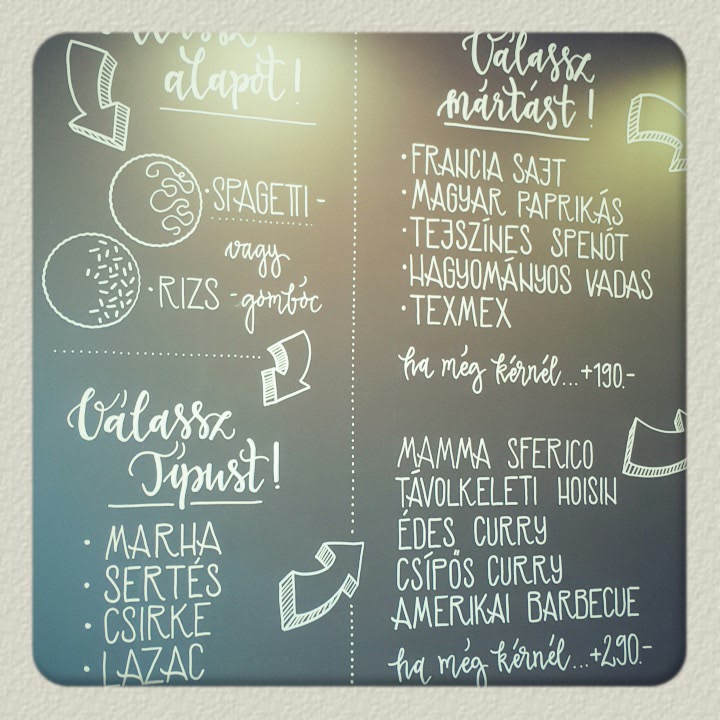 Válassz
alapot!
· SPAGETTI -
vagy
· RIZS - gombóc
Válassz
Típust!
· MARHA
· SERTÉS
· CSIRKE
· LAZAC
Válassz
mártást!
· FRANCIA SAJT
· MAGYAR PAPRIKÁS
· TEJSZÍNES SPENÓT
· HAGYOMÁNYOS VADAS
· TEXMEX
ha még kérnél...+190.-
MAMMA SFERICO
TÁVOLKELETI HOISIN
ÉDES CURRY
CSÍPŐS CURRY
AMERIKAI BARBECUE
ha még kérnél...+290.-